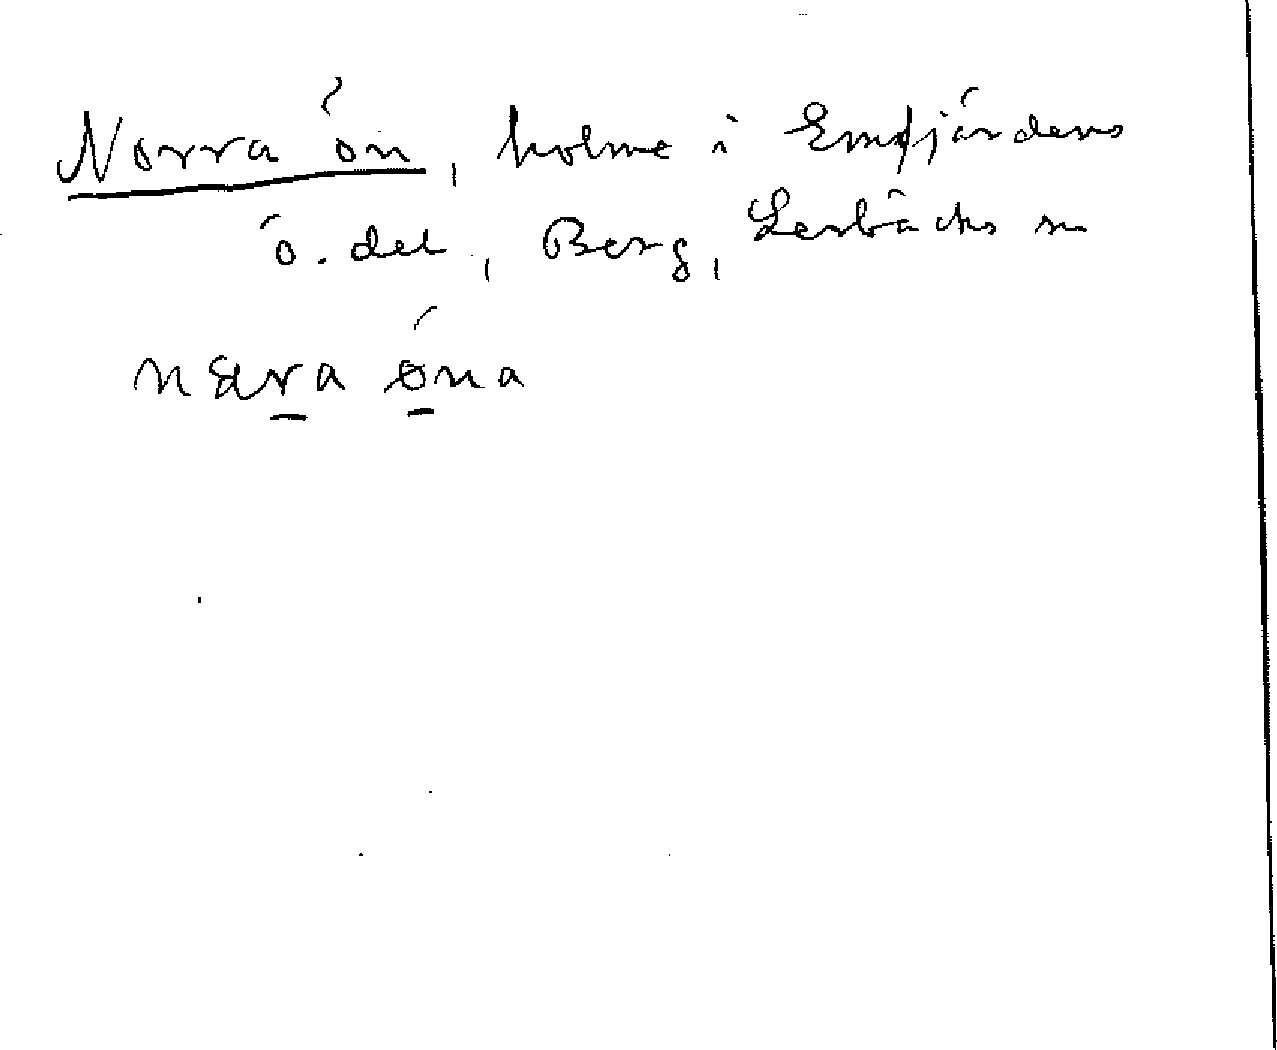 Norra ön, holme i Emfjärdens
ö. del, Berg, Lerbäcks sn
næra öna